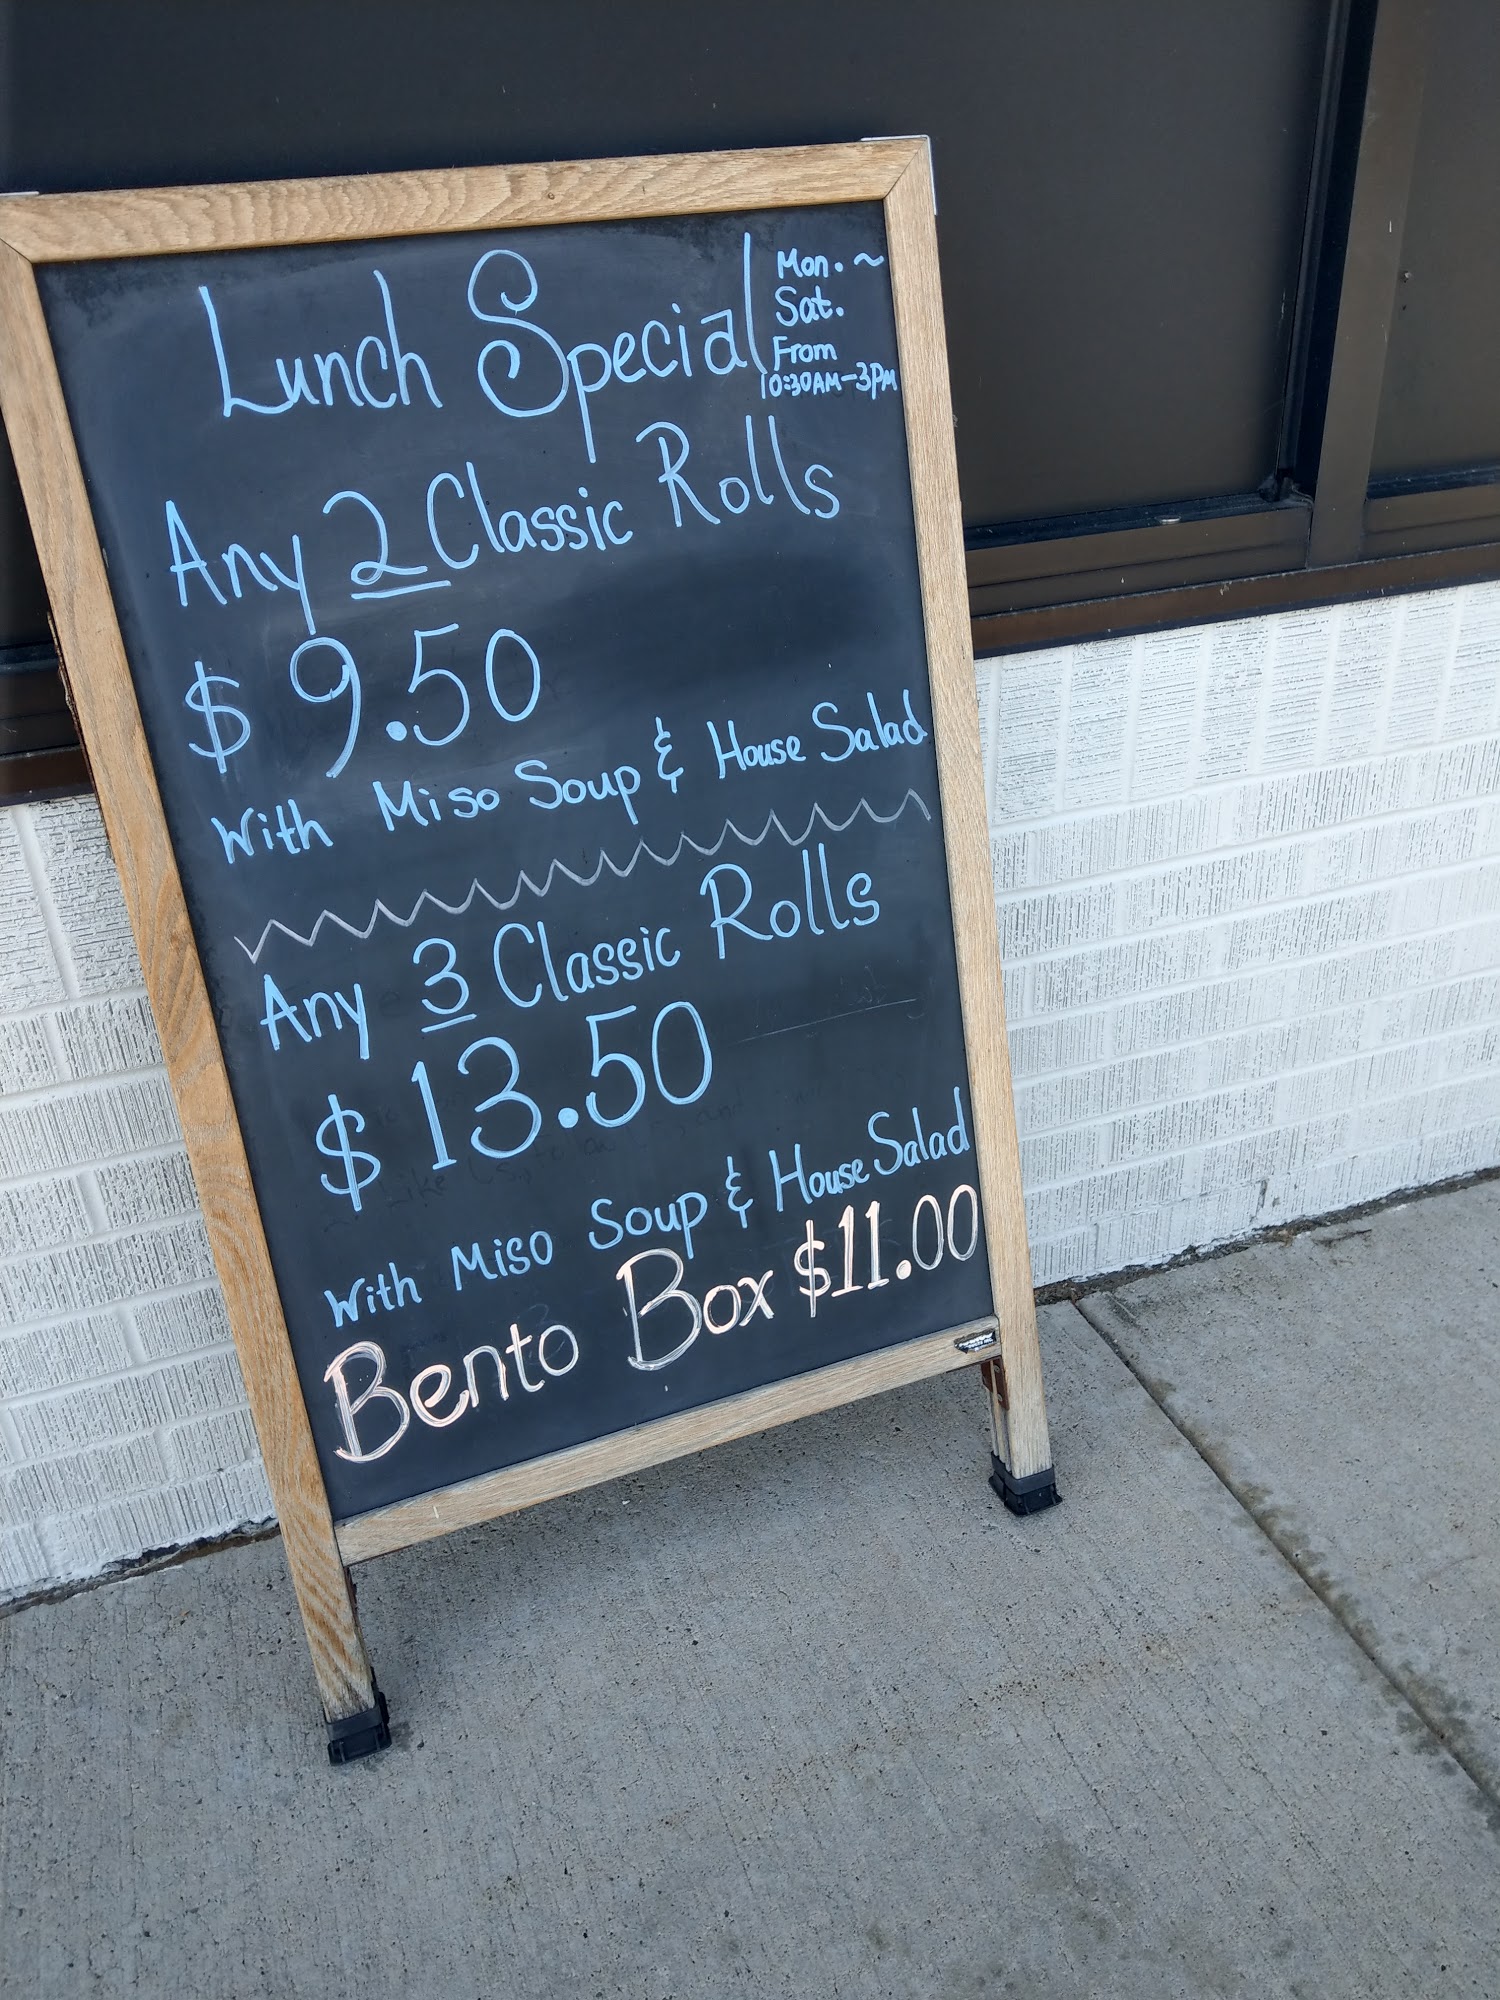 Lunch Special
Mon. ~
Sat.
From
10:30AM-3PM
Any 2 Classic Rolls
$ 9.50
With Miso Soup & House Salad
Any 3 Classic Rolls
$ 13.50
With Miso Soup & House Salad
Bento Box $11.00